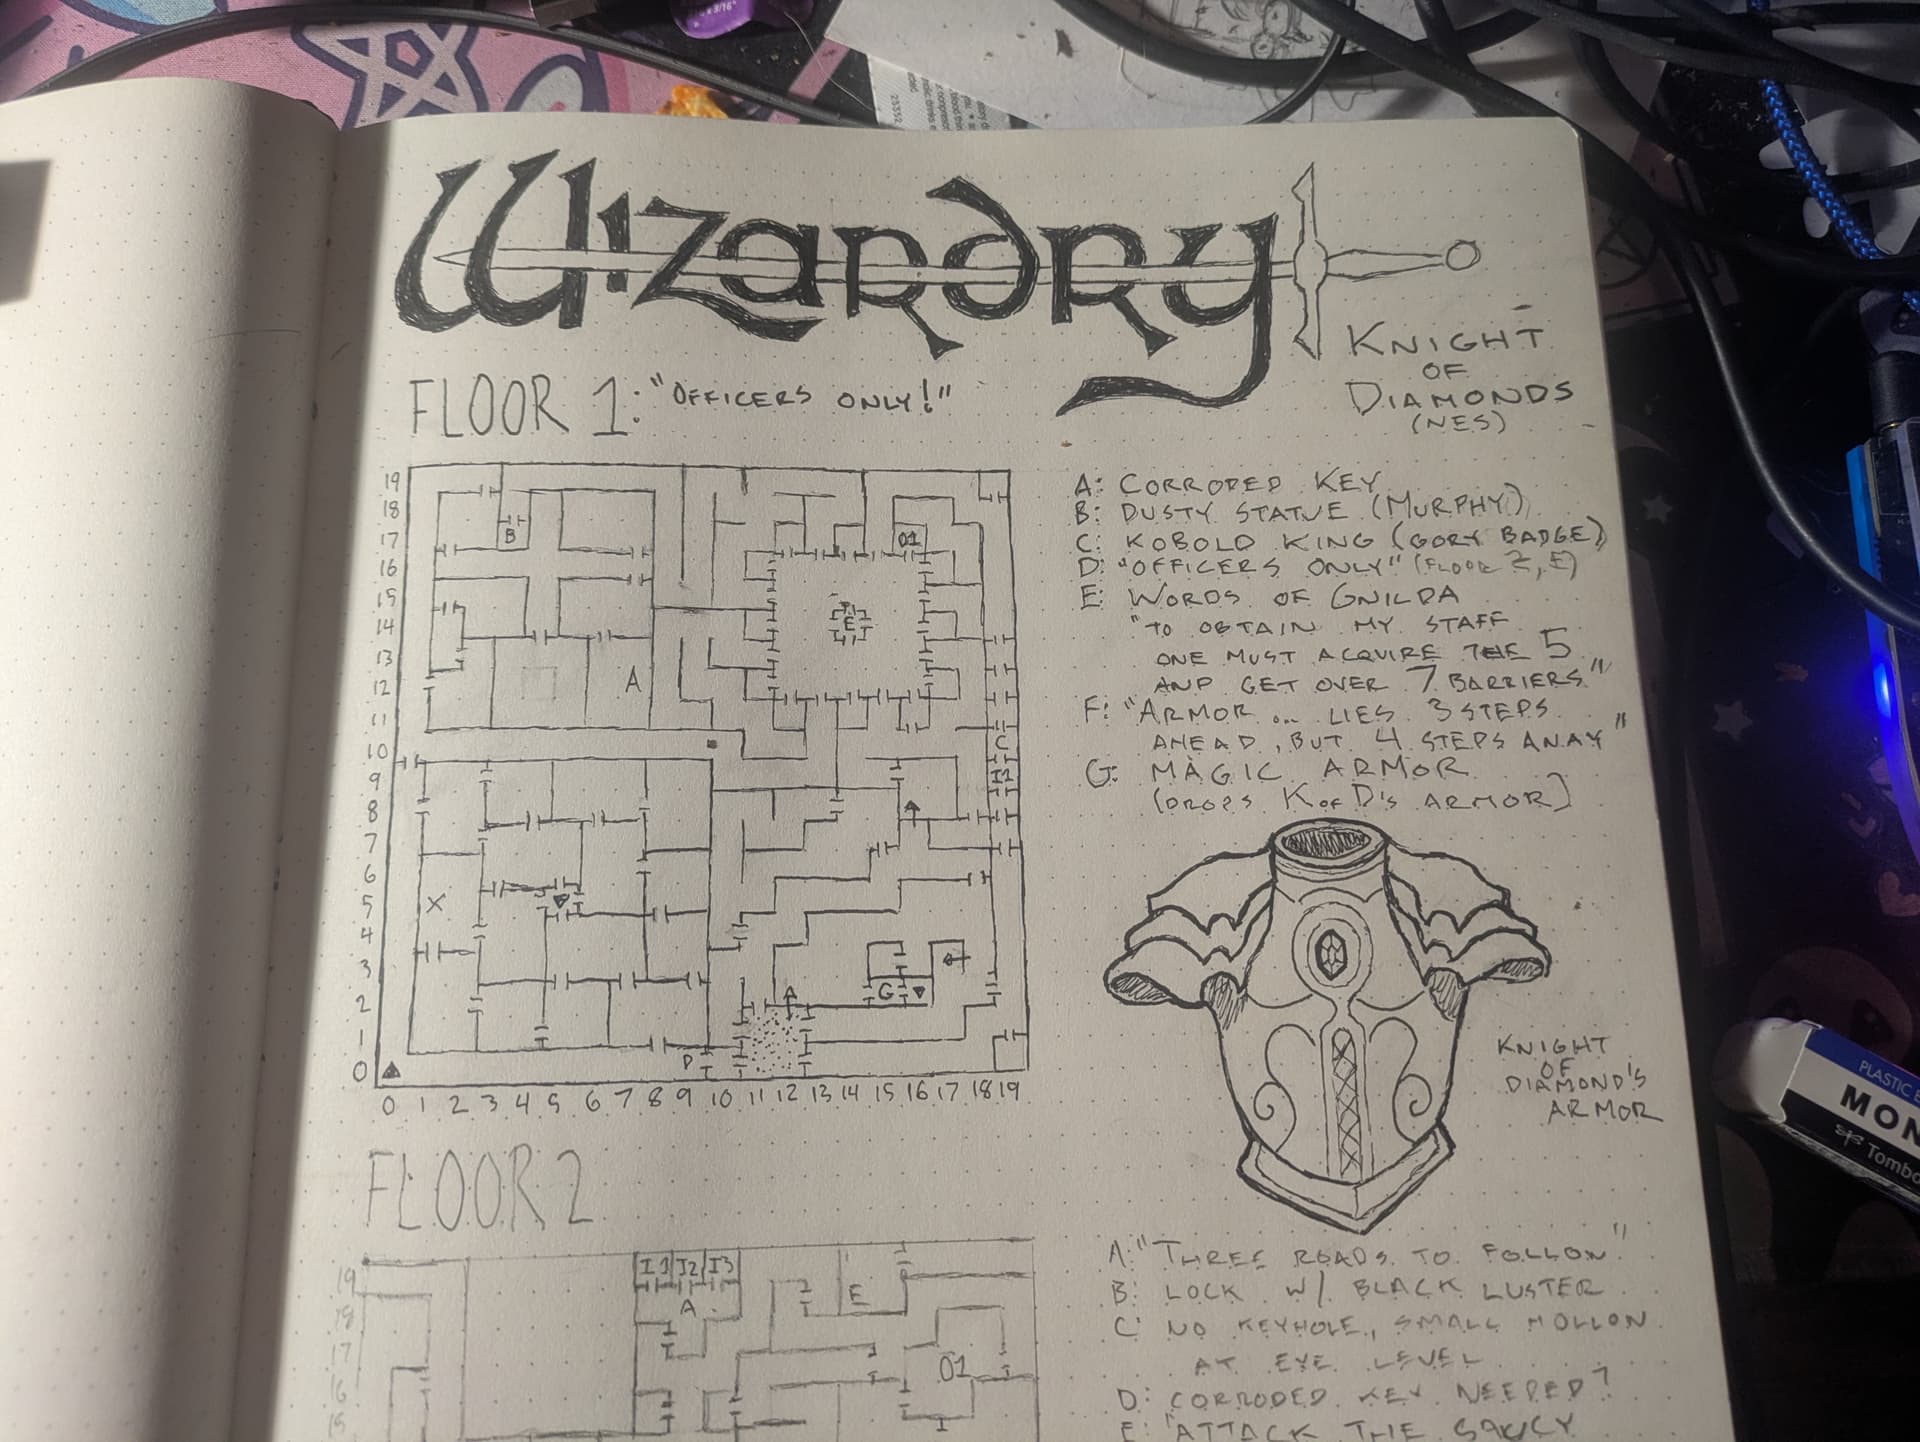 Wizardry
KNIGHT
OF
DIAMONDS
(NES)
FLOOR 1: "OFFICERS ONLY!"
A: CORRODED KEY
B: DUSTY STATUE (MURPHY)
C: KOBOLD KING (GORY BADGE)
D: "OFFICERS ONLY" (FLOOR 2, E)
E: WORDS OF GNILDA
"TO OBTAIN MY STAFF
ONE MUST ACQUIRE THE 5
AND GET OVER 7 BARRIERS"
F: "ARMOR... LIES 3 STEPS
AHEAD, BUT 4 STEPS AWAY"
G: MAGIC ARMOR
(DROPS K OF D'S ARMOR)
19
18
17
16
15
14
13
12
11
10
9
8
7
6
5
4
3
2
1
0
B
O1
E
A
C
I1
X
G
A
D
0 1 2 3 4 5 6 7 8 9 10 11 12 13 14 15 16 17 18 19
KNIGHT
OF
DIAMOND'S
ARMOR
FLOOR 2
19
18
17
16
15
I1 I2 I3
A
E
O1
A: "THREE ROADS TO FOLLOW"
B: LOCK W/ BLACK LUSTER
C: NO KEYHOLE, SMALL HOLLOW
AT EYE LEVEL
D: CORRODED KEY NEEDED?
E: "ATTACK THE SAUCY
PLASTIC
MON
Tombo
3/16"
25352